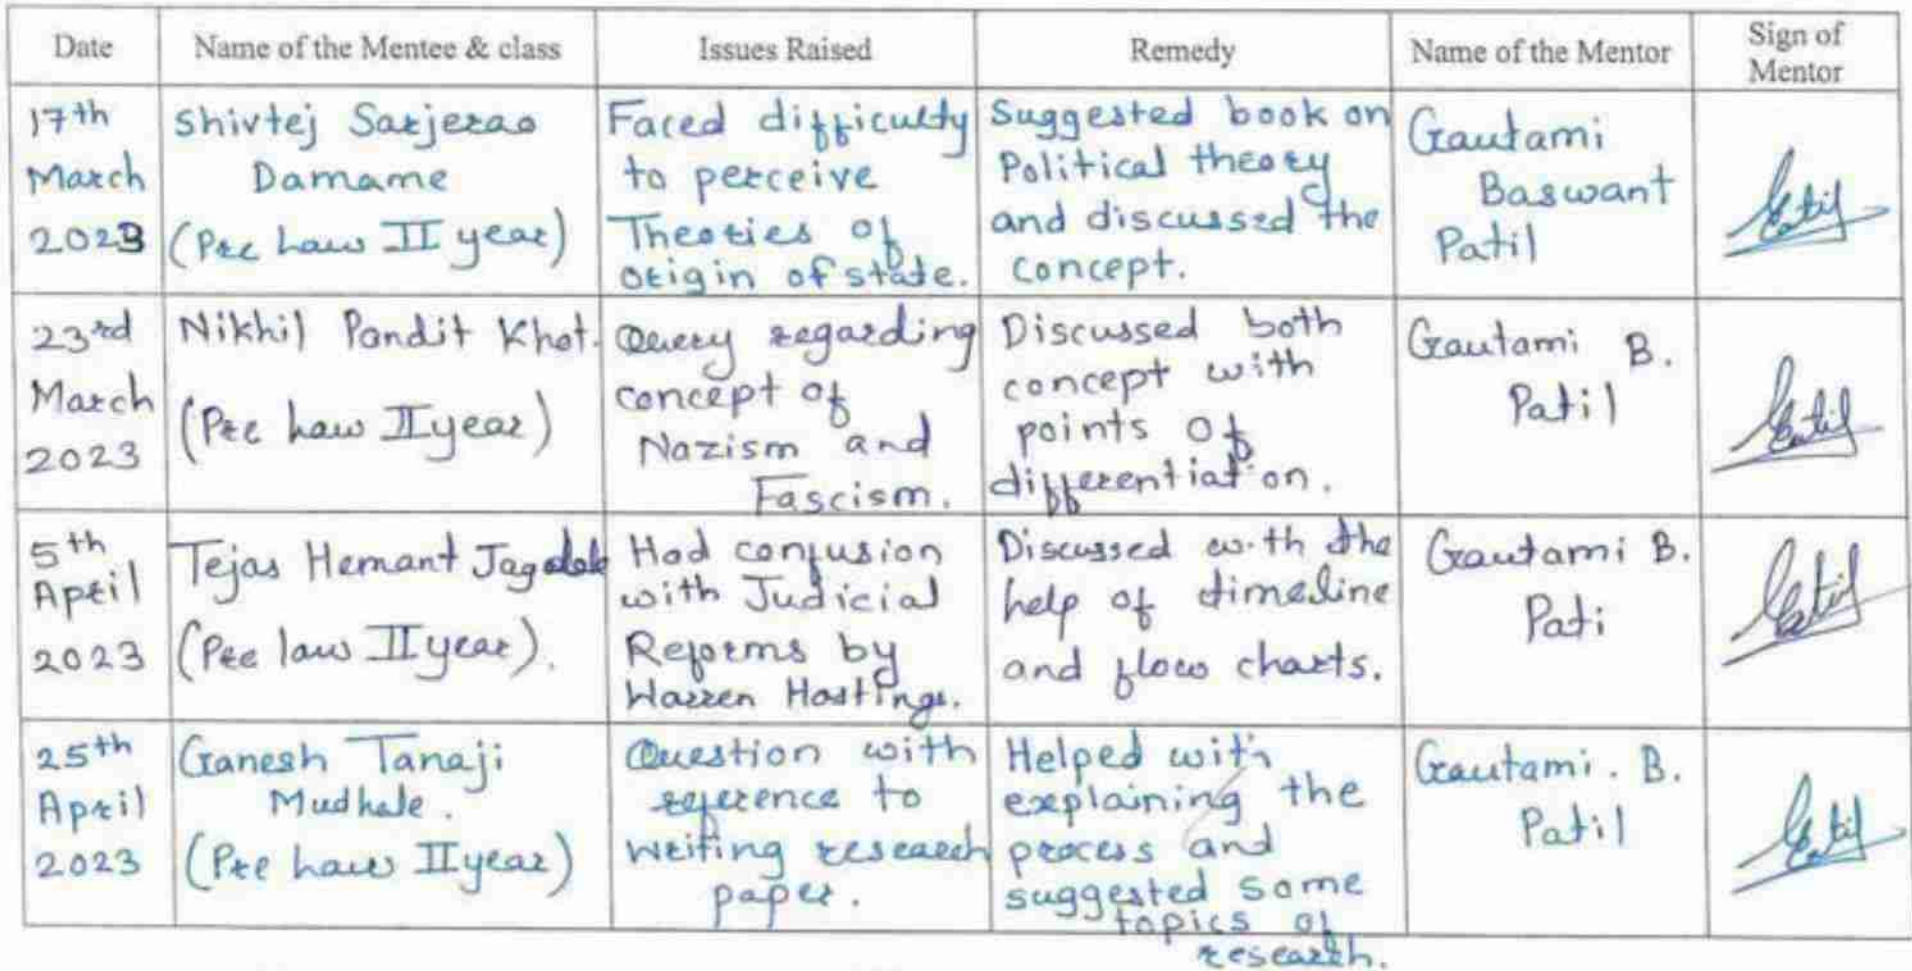 Date
Name of the Mentee & class
Issues Raised
Remedy
Name of the Mentor
Sign of
Mentor
17th
March
2023
Shivtej Sarjerao
Damame
(Pre Law II year)
Faced difficulty
to perceive
Theories of
origin of state.
Suggested book on
Political theory
and discussed the
concept.
Gautami
Baswant
Patil
23rd
March
2023
Nikhil Pandit Khot.
(Pre Law II year)
Query regarding
concept of
Nazism and
Fascism.
Discussed both
concept with
points of
differentiation.
Gautami B.
Patil
5th
April
2023
Tejas Hemant
(Pre law II year).
Had confusion
with Judicial
Reforms by
Warren Hastings.
Discussed with the
help of timeline
and flow charts.
Gautami B.
Pati
25th
April
2023
Ganesh Tanaji
Mudhale.
(Pre Law II year)
Question with
reference to
writing research
paper.
Helped with
explaining the
process and
suggested some
topics of
research.
Gautami. B.
Patil